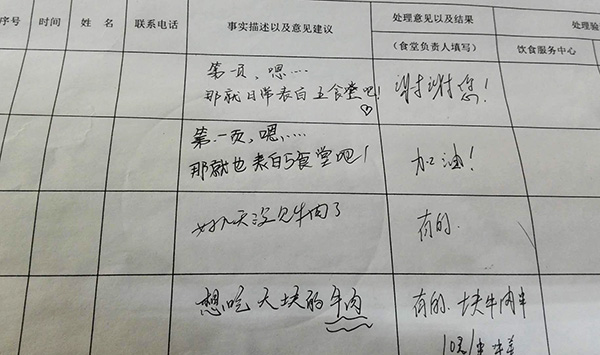 序号 时间 姓名 联系电话 事实描述以及意见建议 处理意见以及结果 处理验
（食堂负责人填写） 饮食服务中心
第一页，嗯……
那就日常表白五食堂吧！♡
谢谢您！
第一页，嗯……
那就也表白5食堂吧！
加油！
好几天没见牛肉了
有的.
想吃大块的牛肉
有的.块牛肉牛